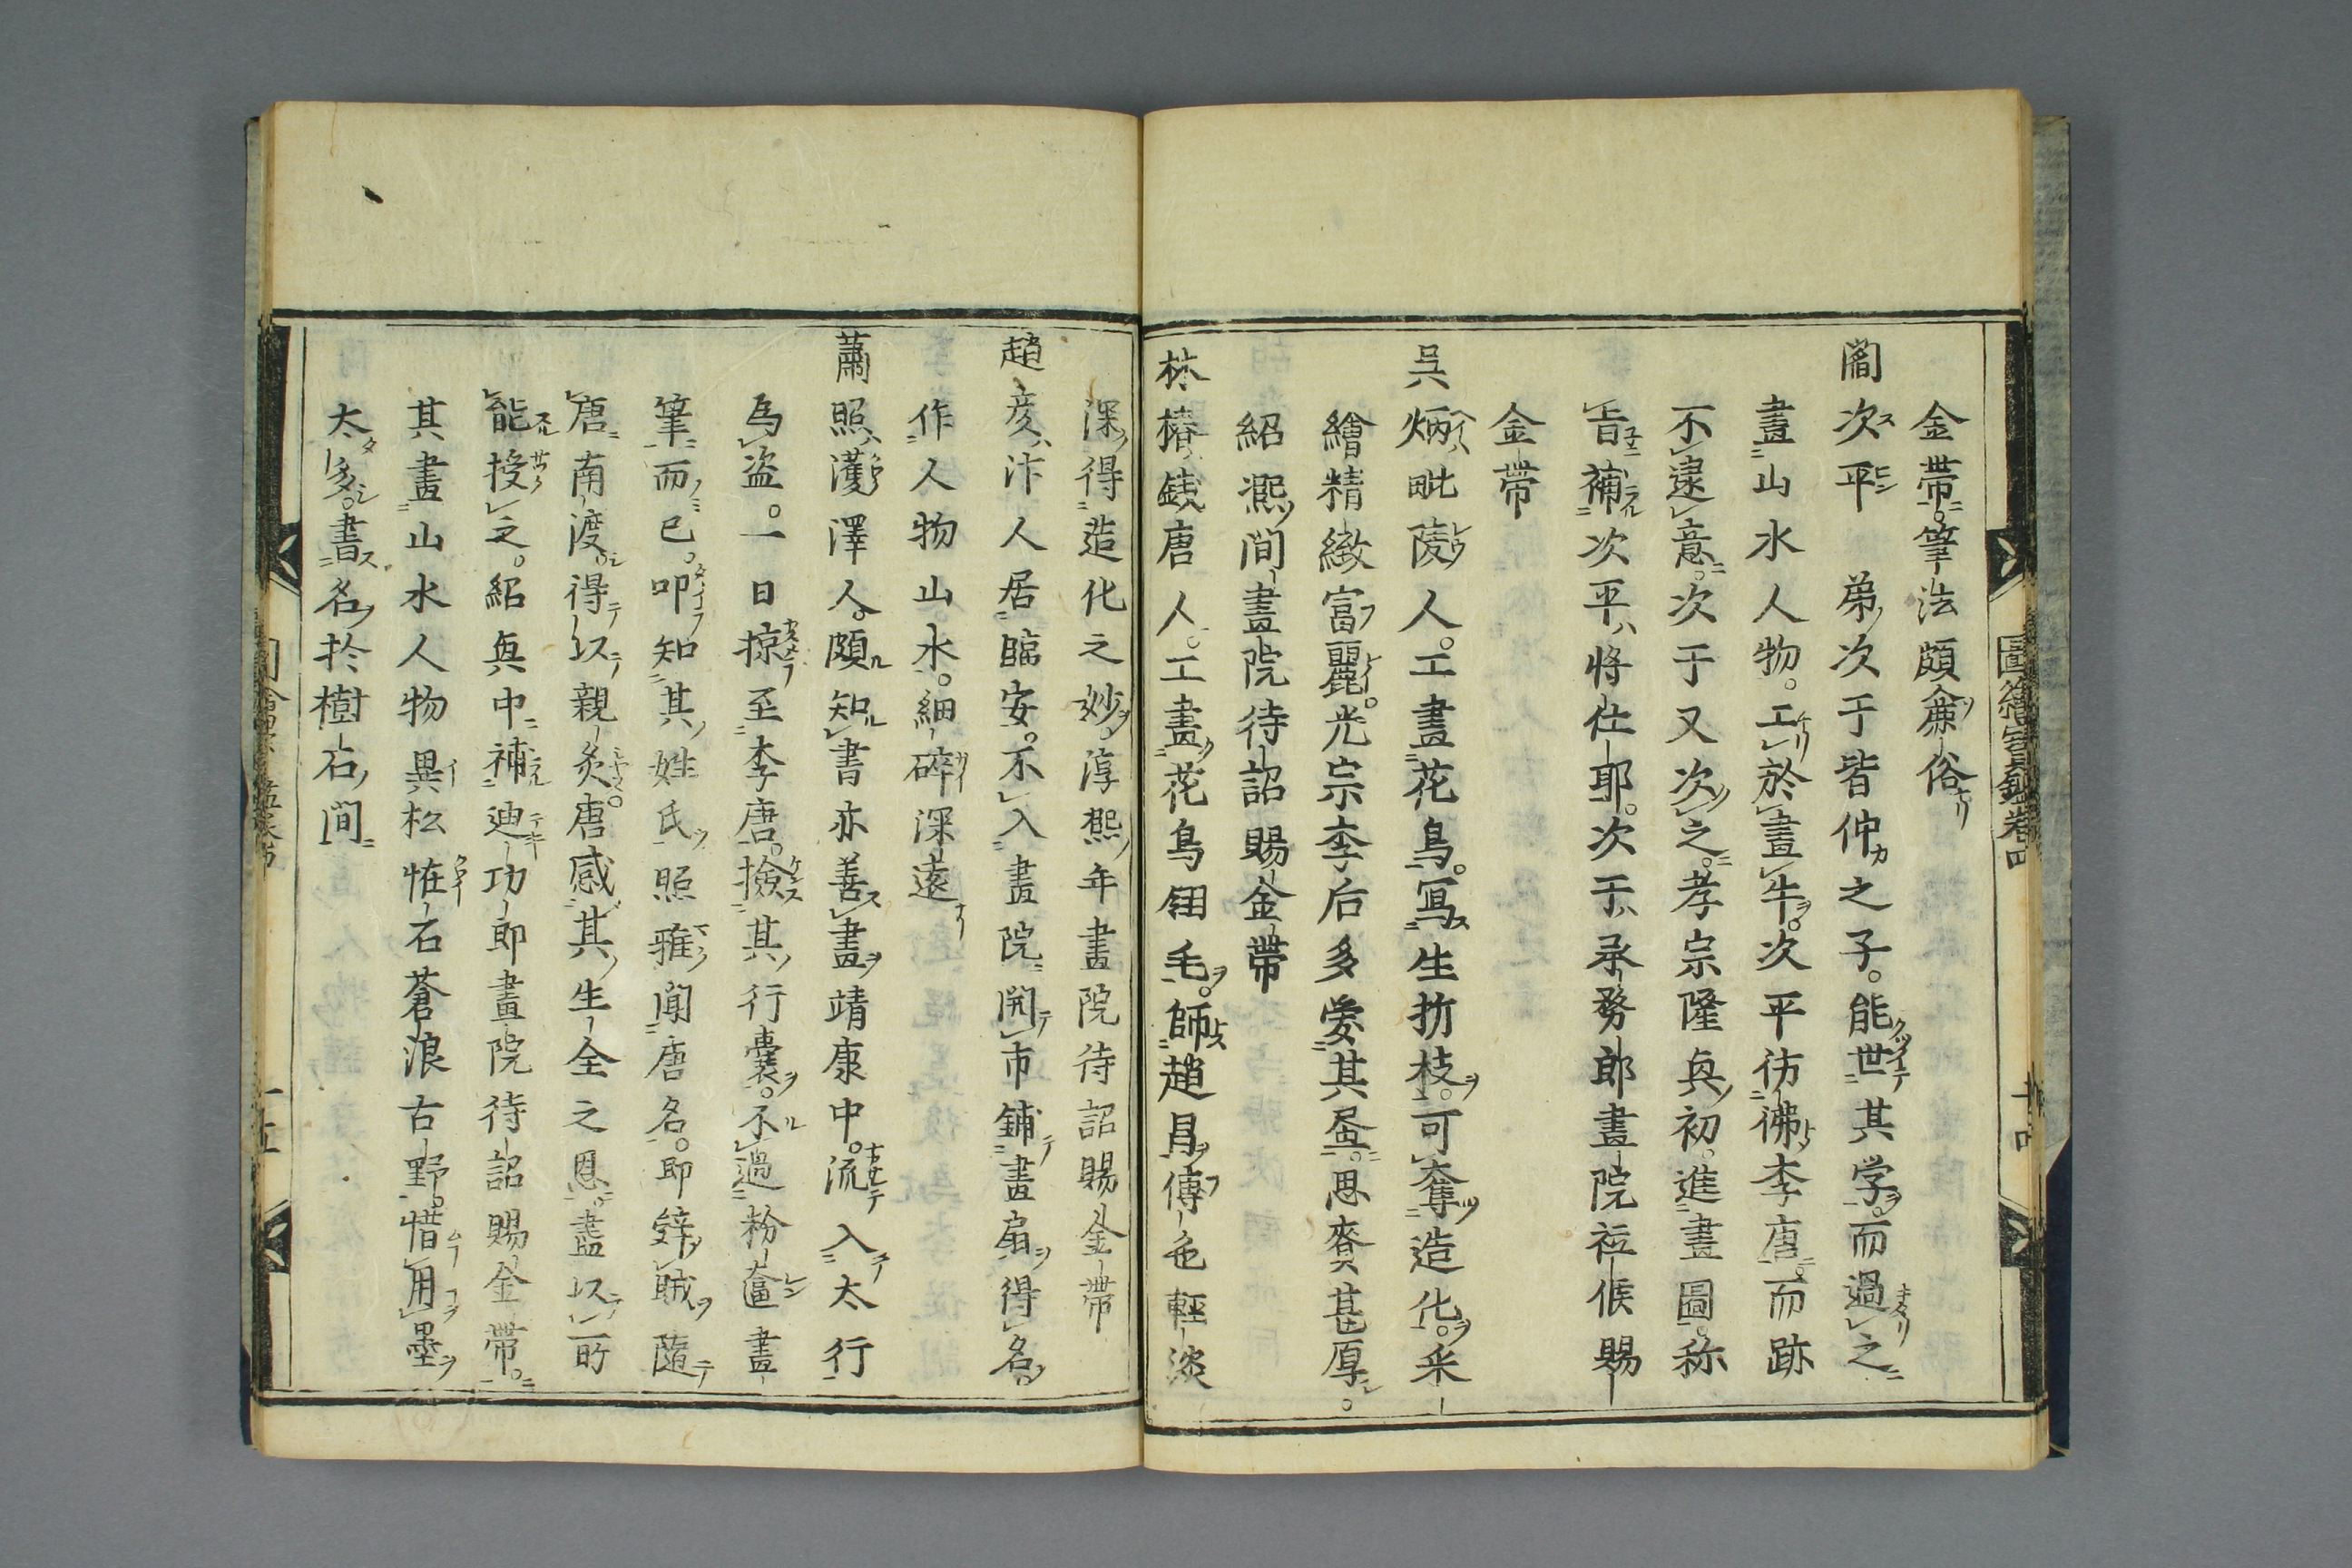 金帶筆法頗麄俗
閻次平 弟次于皆仲之子。能世其学。而過之
畫山水人物。工於畫牛。次平彷彿李唐。而跡
不逮意。次于又次之。孝宗隆興初。進畫圖。称
旨補次平將仕郎。次于承務郎畫院祗候賜
金帶
吳炳毗陵人。工畫花鳥。寫生折枝。可奪造化。采
繪精緻富麗。光宗李后多愛其畫。恩賚甚厚。
紹熙間畫院待詔賜金帶
林椿錢唐人。工畫花鳥翎毛。師趙昌。傳色輕淡
深得造化之妙。淳熙年畫院待詔賜金帶
趙彦汴人居臨安。不入畫院開市鋪畫扇得名。
作人物山水。細碎深遠
蕭照濩澤人。頗知書亦善畫靖康中。流入太行
為盗。一日掠至李唐。撿其行囊。不過粉奩畫
筆而已。叩知其姓氏照雅聞唐名。即辤賊隨
唐南渡。得以親炙。唐感其生全之恩。盡以所
能授之。紹興中補迪功郎畫院待詔賜金帶。
其畫山水人物異松恠石蒼浪古野。惜用墨
太多。書名於樹石間
圖繪宝鑑卷四
十四